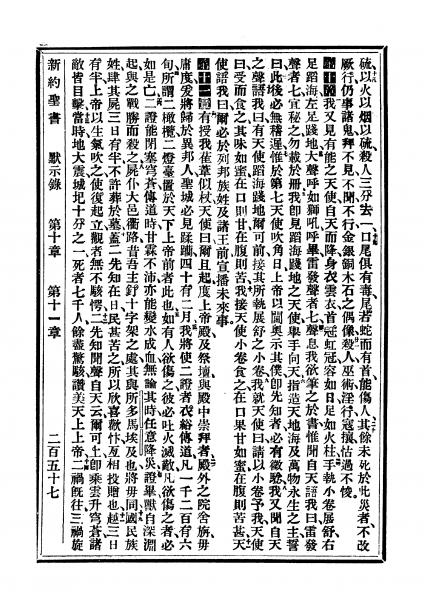 硫以火以烟以硫殺人三分去一口尾俱有毒尾若蛇而有首能傷人其餘未死於此災者不改
厥行仍事諸鬼拜不見不聞不行金銀銅木石之偶像殺人巫術淫行寇攘怙過不悛
第十章我又見有能之天使自天而降身衣雲衣首冠虹冠容如日足如火柱手執小卷展舒右
足蹈海左足踐地大聲呼如獅吼呼畢雷發聲者七聲息我欲筆之於書惟聞自天語我曰雷發
聲者七宜秘之勿載於冊我卽見蹈海踐地之天使舉手向天指造天地海及萬物永生之主誓
曰此後必無稽遲惟於第七天使吹角日上帝以閫奥示其僕卽先知者必有徵騐我又聞自天
之聲語我曰有天使蹈海踐地爾可前接其所執展舒之小卷我就天使曰請以小卷予我天使
曰受而食之其味如蜜在口則甘在腹則苦我接天使小卷食之在口果甘如蜜在腹則苦甚天
使語我曰爾必於列邦族姓及諸王前宣播未來事
第十一章有授我萑葦似杖天使曰爾且起度上帝殿及祭壇與殿中崇拜者殿外之院舍旃毋
庸度爰將歸於異邦人聖城必見蹂躪四十有二月我將使二證者衣綌傳道凡一千二百有六
旬所謂二橄欖二燈臺置於天下上帝前者此也如有人欲傷之彼必吐火滅敵凡欲傷之者必
如是亡二證能閉塞穹蒼傳道時甘霖不沛亦能變水成血無論其時任意降災證畢獸自深淵
起與之戰勝而殺之屍仆大邑衢路昔吾主釘十字架之處其與所多馬埃及也將毋同國民族
姓肆其屍三日有半不許葬於墓蓋二先知在日民甚苦之所以欣喜歡忭互相投贈也越三日
有半上帝以生氣吹之使復起立觀者無不駭愕二先知聞聲自天云爾可上卽乘雲升穹蒼諸
敵皆目擊當時地大震城圮十分之一死者七千人餘盡驚駭讚美天上上帝二禍旣往三禍旋
新約聖書 默示錄 第十章 第十一章 二百五十七